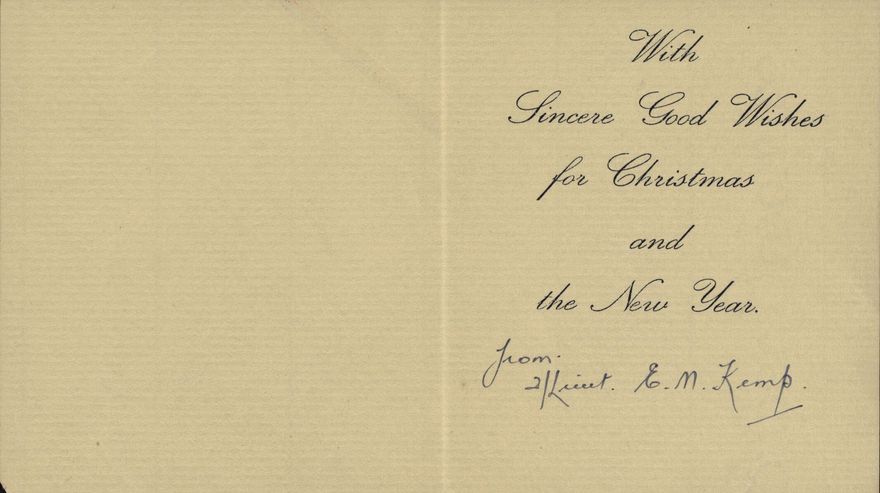 With
Sincere Good Wishes
for Christmas
and
the New Year.
from.
2/Lieut. E. M. Kemp.